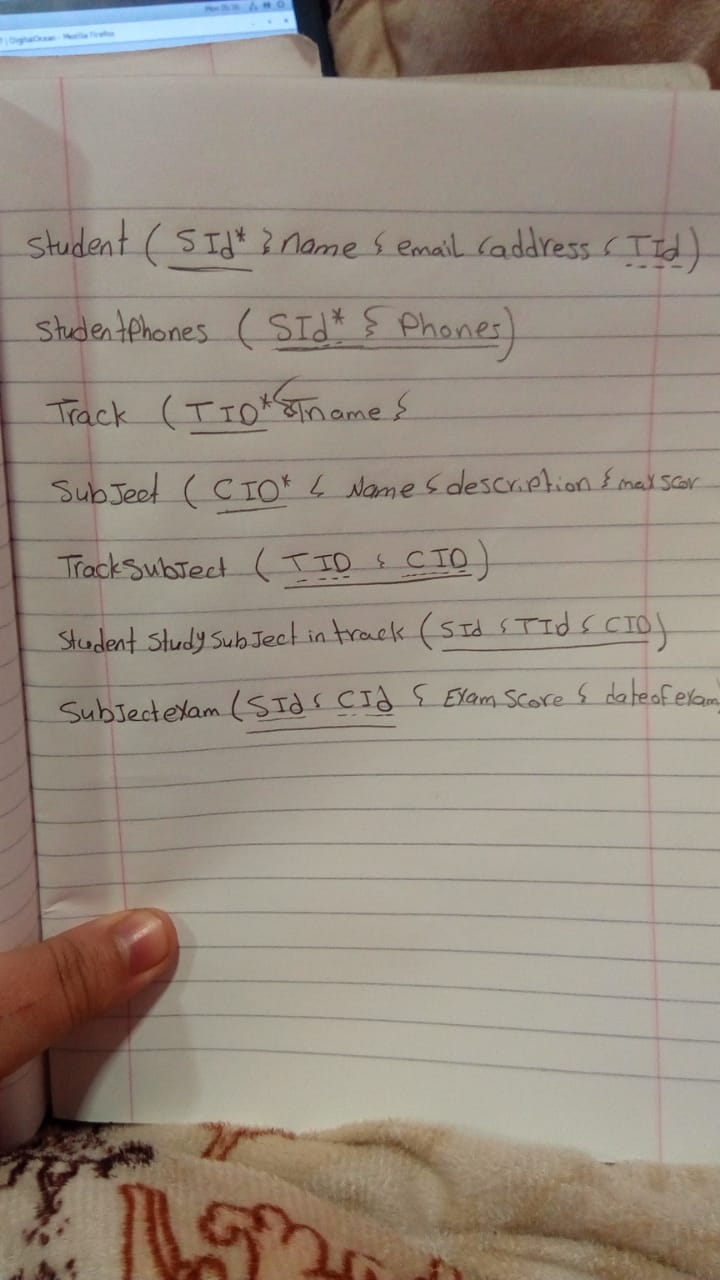 Mon 05:26
| DigitalOcean - Mozilla Firefox
Student ( SId* , name , email , address , TId )
Studentphones ( SId* , Phones )
Track ( TID* , Tname ,
SubJect ( CID* , Name , description , max scor
TrackSubJect ( TID , CID )
Student Study SubJect in track ( SId , TId , CID )
SubJectexam ( SId , CId , Exam Score , date of exam